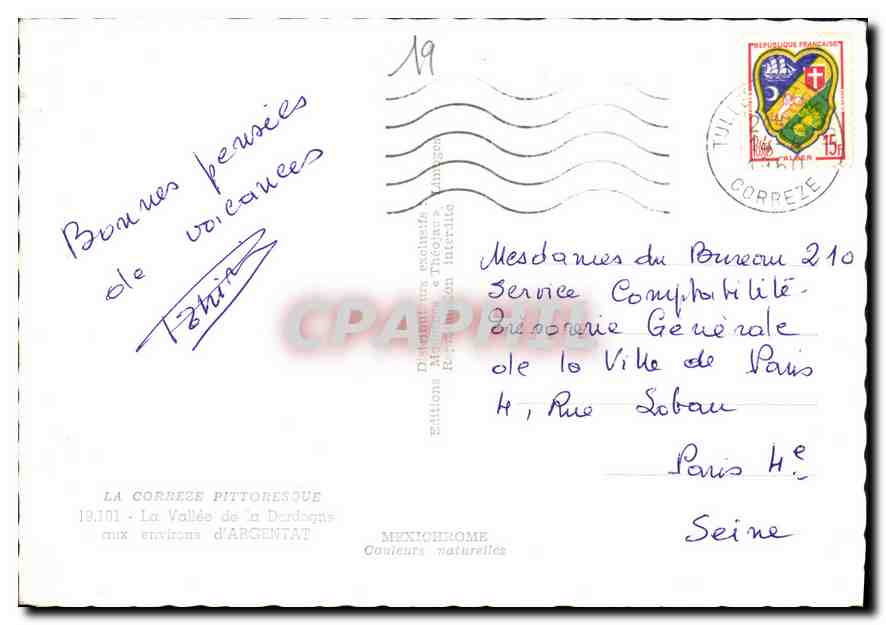 19
Bonnes pensées
de vacances
REPUBLIQUE FRANÇAISE
15F
ALGER
TULLE
CORREZE
Mesdames du Bureau 210
Service Comptabilité-
Trésorerie Générale
de la Ville de Paris
4, Rue Lobau
Paris 4e
Seine
Distributeurs exclusifs :
Editions « Théojac », Limoges
Reproduction interdite
CPAPHIL
LA CORREZE PITTORESQUE
19.101 - La Vallée de la Dordogne
aux environs d'ARGENTAT
MEXICHROME
Couleurs naturelles